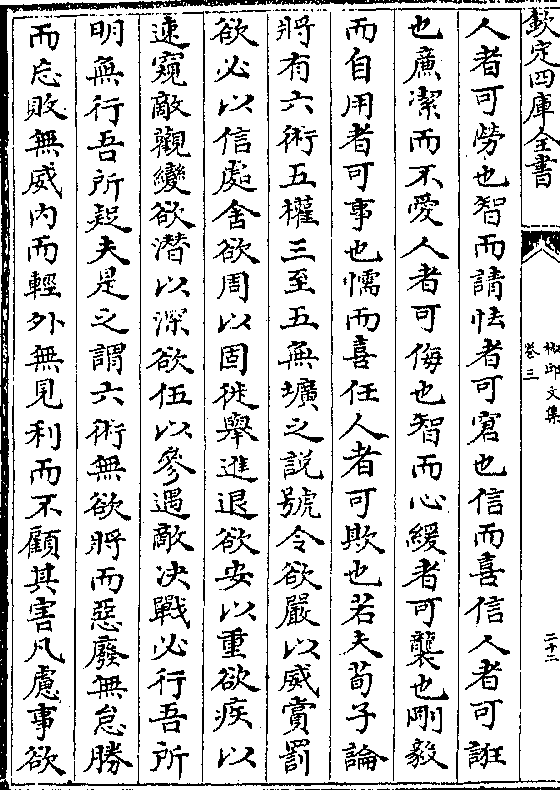 欽定四庫全書
邱文集
卷三
二十二
人者可勞也智而請怯者可窘也信而喜信人者可誑
也廉潔而不愛人者可侮也智而心緩者可襲也剛毅
而自用者可事也懦而喜任人者可欺也若夫荀子論
將有六術五權三至五無壙之說號令欲嚴以威賞罰
欲必以信處舍欲周以固徙舉進退欲安以重欲疾以
速窺敵觀變欲潛以深欲伍以參遇敵决戰必行吾所
明無行吾所疑夫是之謂六術無欲將而惡廢無怠勝
而忘敗無威内而輕外無見利而不顧其害凡慮事欲